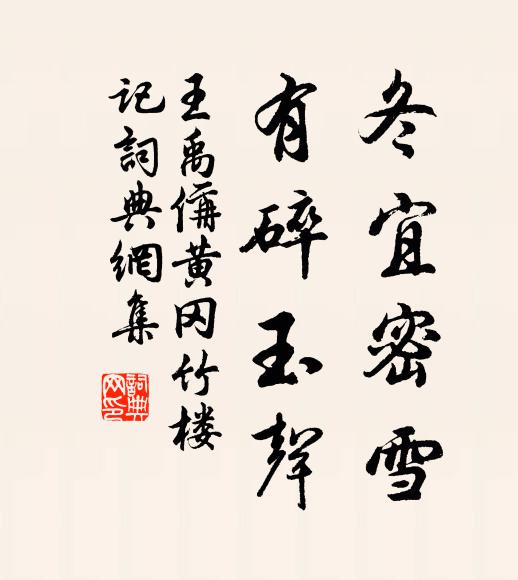 冬宜密雪
有碎玉聲
王禹偁黄冈竹楼
记詞典網集
詞典
网印